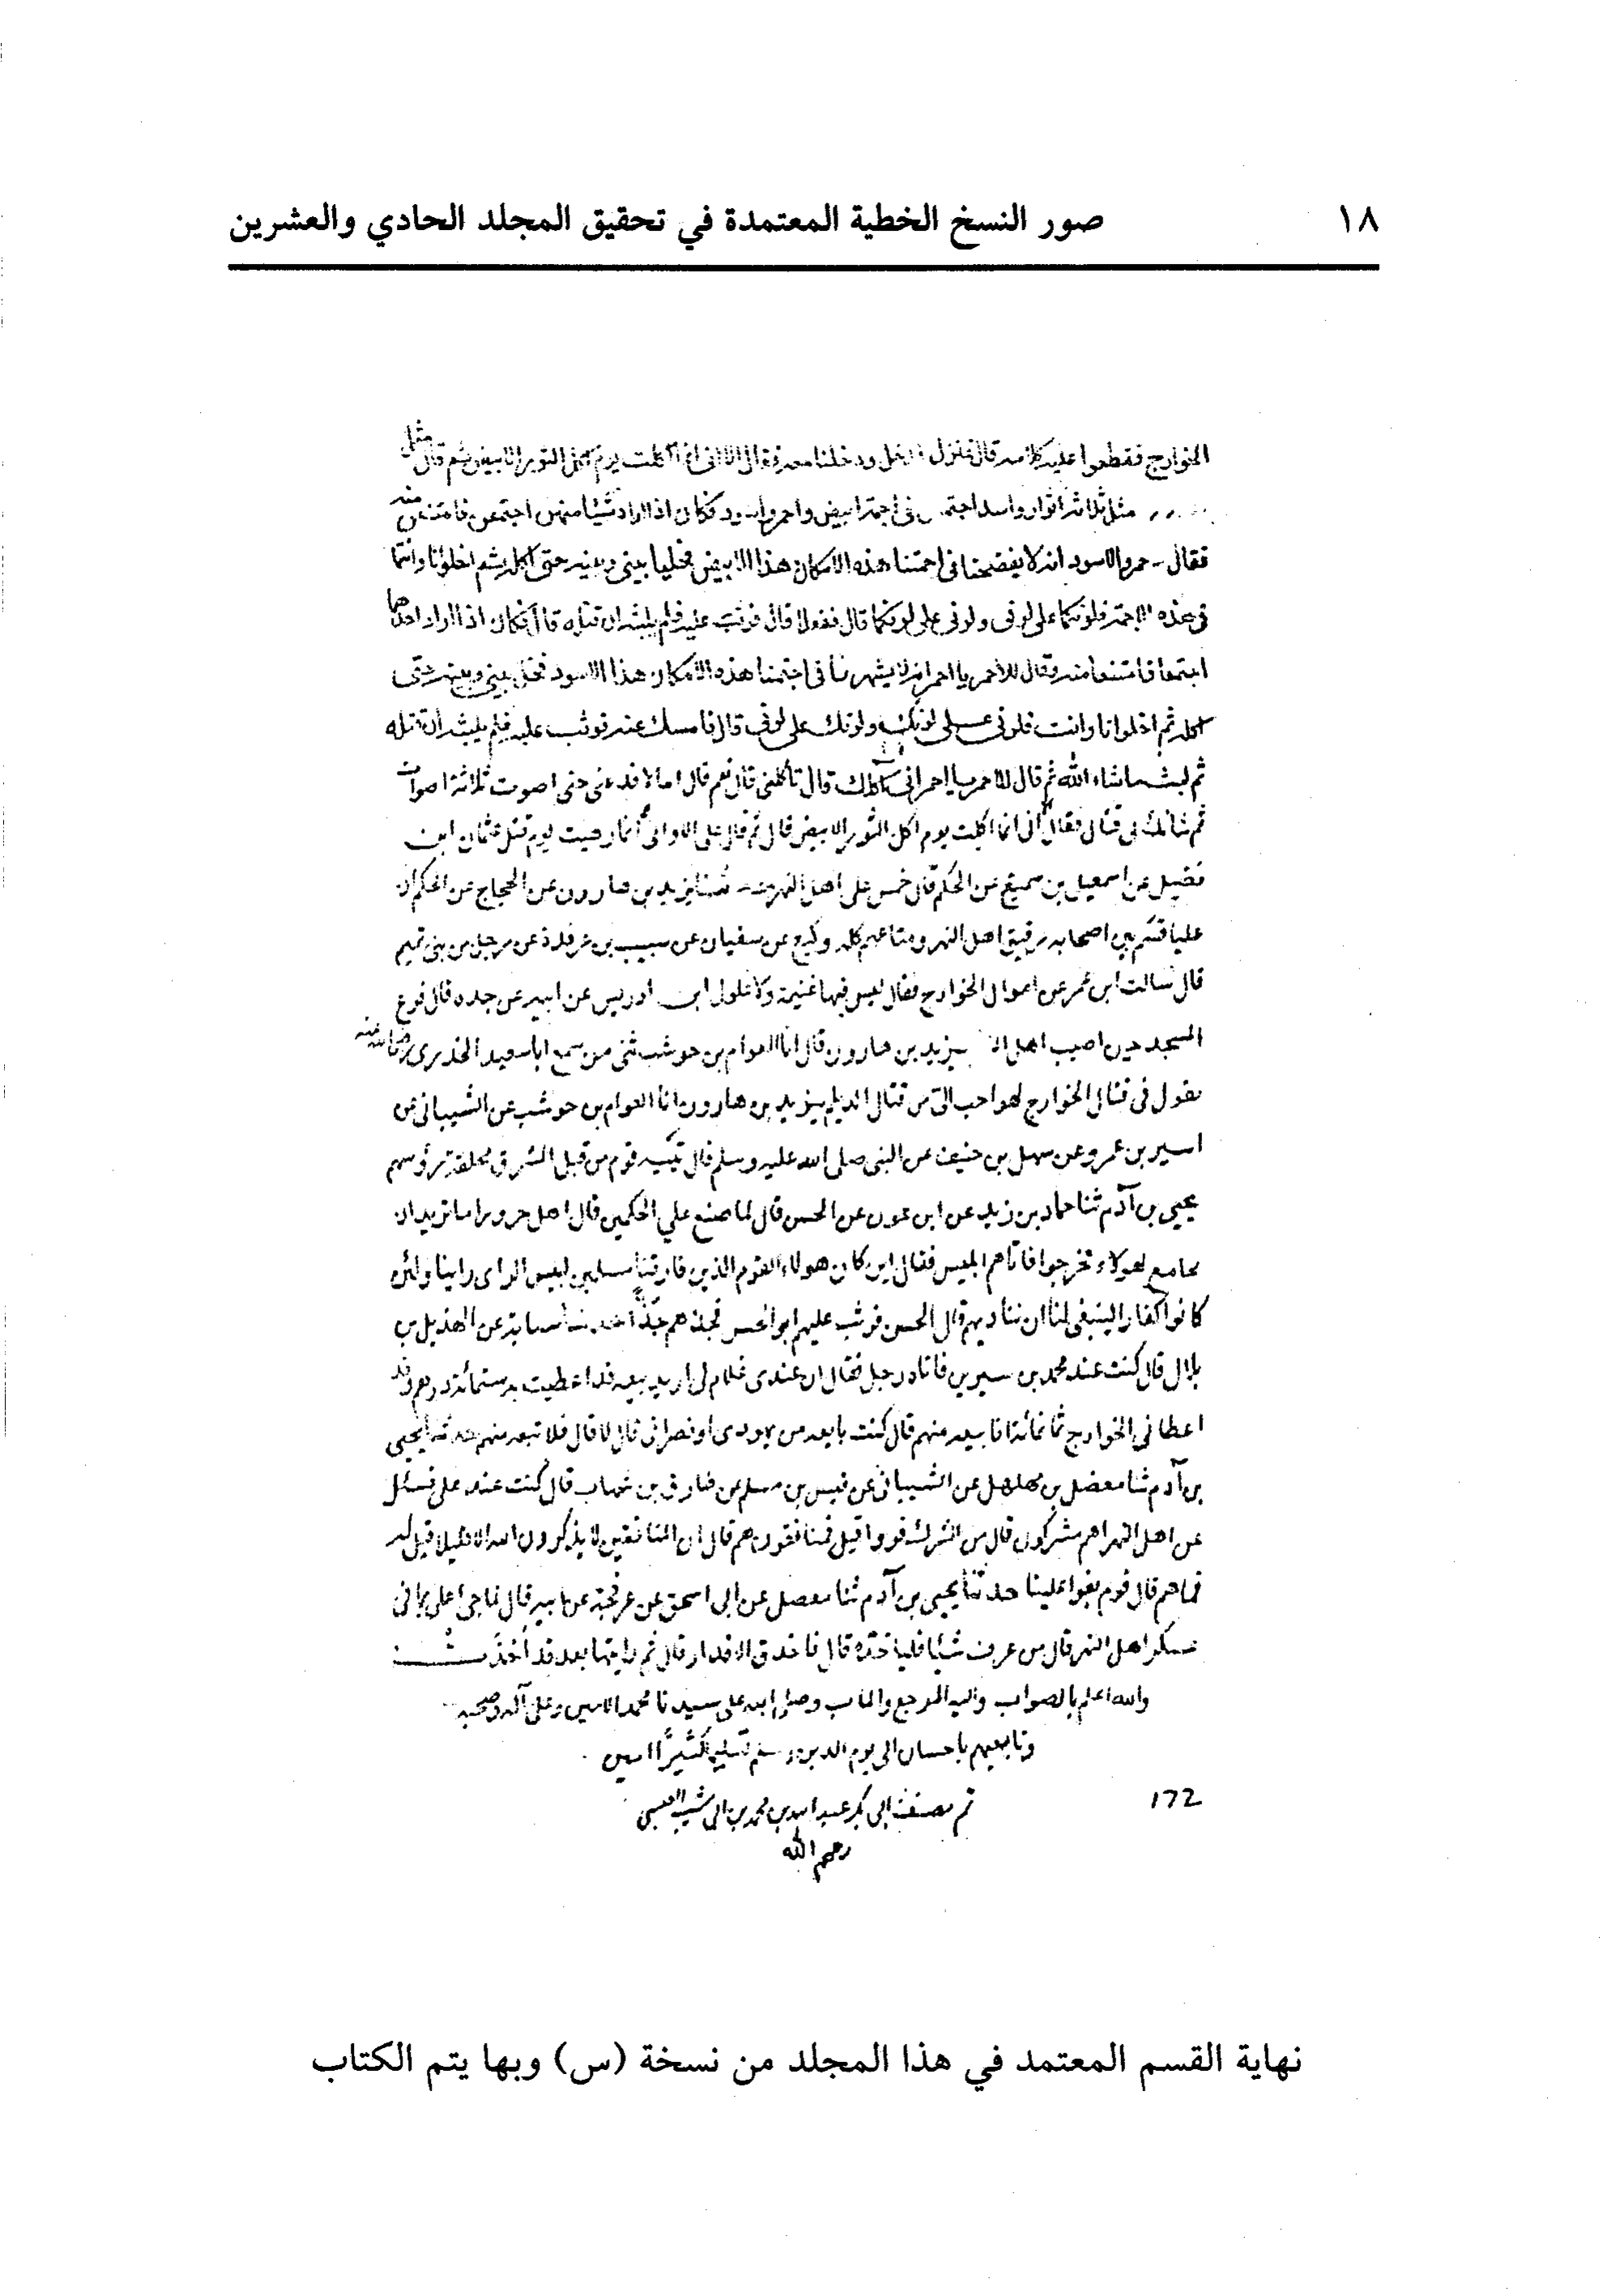 ١٨ صور النسخ الخطية المعتمدة في تحقيق المجلد الحادي والعشرين
الخوارج فقطعوا عليه كلامه قال فنزل فدخل ودخلنا معه فقال الا انى انما اكلت يوم اكل الثور الابيض ثم قال مثل
مثل ثلاثة اثوار واسد اجتمعن فى اجمة ابيض واحمر واسود فكان اذا اراد شيئا منهن اجتمعن فامتنعن منه
فقال حمر والاسود انه لا يفضحنا فى اجمتنا هذه الا مكان هذا الابيض فخليا بينى وبينه حتى اكله ثم اخلو انا وانتما
فى هذه الاجمة فلونكما على لونى ولونى على لونكما قال ففعلا قال فوثب عليه فلم يلبثه ان قتله قال فكان اذا اراد احدهما
اجتمعا فامتنعا منه وقال للاحمر يا احمر انه لا يشهرنا فى اجمتنا هذه الا مكان هذا الاسود فخل بينى وبينه حتى
اكله ثم اخلوا انا وانت فلونى على لونك ولونك على لونى قال فامسك عنه فوثب عليه فلم يلبثه ان قتله
ثم لبث ما شاء الله ثم قال للاحمر يا احمر انى اكلك قال تأكلنى قال نعم قال اما لا فدعنى حتى اصوت ثلاثة اصوات
ثم شانك بى قتالى فقال الا انى انما اكلت يوم اكل الثور الابيض قال ثم قال على الا وانى انما رهبت يوم قتل عثمان ابن
فضيل عن اسمعيل بن سميع عن الحكم قال خمس على اهل النهر يزيد بن هارون عن الحجاج عن الحكم ان
عليا قسم بين اصحابه رقيق اهل النهر ومتاعهم كله وكيع عن سفيان عن شبيب بن غرقدة عن رجل من بنى تميم
قال سالت ابن عمر عن اموال الخوارج فقال ليس فيها غنيمة ولا غلول ابن ادريس عن ابيه عن جده قال فزع
المسجد حين اصيب اهل يزيد بن هارون قال انا العوام بن حوشب ثنى من سمع ابا سعيد الخدرى رضى الله عنه
يقول فى قتال الخوارج لهو احب الى من قتال الديلم يزيد بن هارون انا العوام بن حوشب عن الشيبانى عن
اسير بن عمرو عن سهل بن حنيف عن النبى صلى الله عليه وسلم قال يتيه قوم من قبل المشرق محلقة رؤسهم
يحيى بن آدم ثنا حماد بن زيد عن ابن عون عن الحسن قال لما صنع علي الحكمين قال اهل حرورا ما تريد ان
تجامع لهولاء فخرجوا فاتاهم ابليس فقال اين كان هولاء القوم الذين فارقنا مسلمين لبيس الراى راينا ولئن
كانوا كفارا لينبغى لنا ان نناديهم قال الحسن فوثب عليهم ابو الحسن فجذهم جذا اسامة عن الهذيل بن
بلال قال كنت عند محمد بن سيرين فاتاه رجل فقال ان عندى غلام لى اريد بيعه قد اعطيت به ستمائة درهم وقد
اعطانى الخوارج ثمانمائة افابيعه منهم قال كنت بايعه من يهودى او نصرانى قال لا قال فلا تبعه منهم حدثنا يحيى
بن آدم ثنا مفضل بن مهلهل عن الشيبانى عن قيس بن مسلم عن طارق بن شهاب قال كنت عند على فسئل
عن اهل النهر اهم مشركون قال من الشرك فروا قيل فمنافقون هم قال ان المنافقين لا يذكرون الله الا قليلا قيل له
فما هم قال قوم بغوا علينا حدثنا يحيى بن آدم ثنا مفضل عن ابى اسحق عن عرفجة عن ابيه قال لما جى على بما فى
عسكر اهل النهر قال من عرف شيئا فلياخذه قال فاخذوا الا قدرا قال ثم رايتها بعد قد اخذت
والله اعلم بالصواب واليه المرجع والماب وصلى الله على سيدنا محمد الامين وعلى آله وصحبه
وتابعيهم باحسان الى يوم الدين وسلم تسليما كثيرا امين
تم مصنف ابى بكر عبد الله بن محمد بن ابى شيبة العبسى
172
رحمه الله
نهاية القسم المعتمد في هذا المجلد من نسخة (س) وبها يتم الكتاب